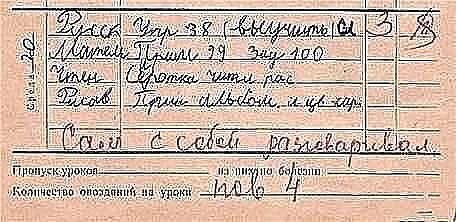 Русск Упр 38 (выучить) 3
Матем Прим 99 Зад 100
Чтен читл рас
Рисов Прин альбом и цв кар
Среда 20
Сам с собой разговаривал
Пропуск уроков из них по болезни
Количество опозданий на уроки пов 4